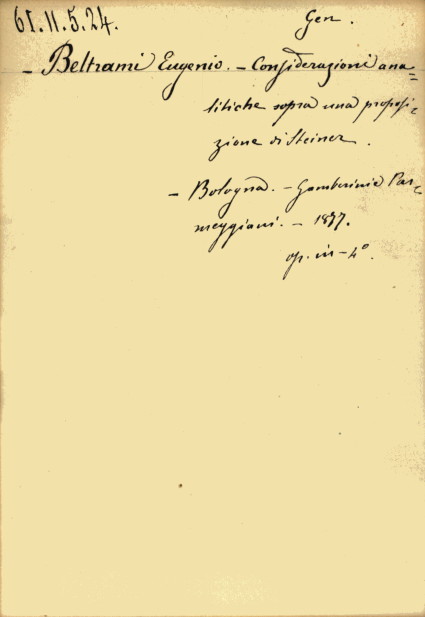 61.11.5.24.
Gen.
- Beltrami Eugenio. - Considerazioni ana=
litiche sopra una proposi=
zione di Steiner.
- Bologna. - Gamberini e Par=
meggiani. - 1877.
op. in-4°.